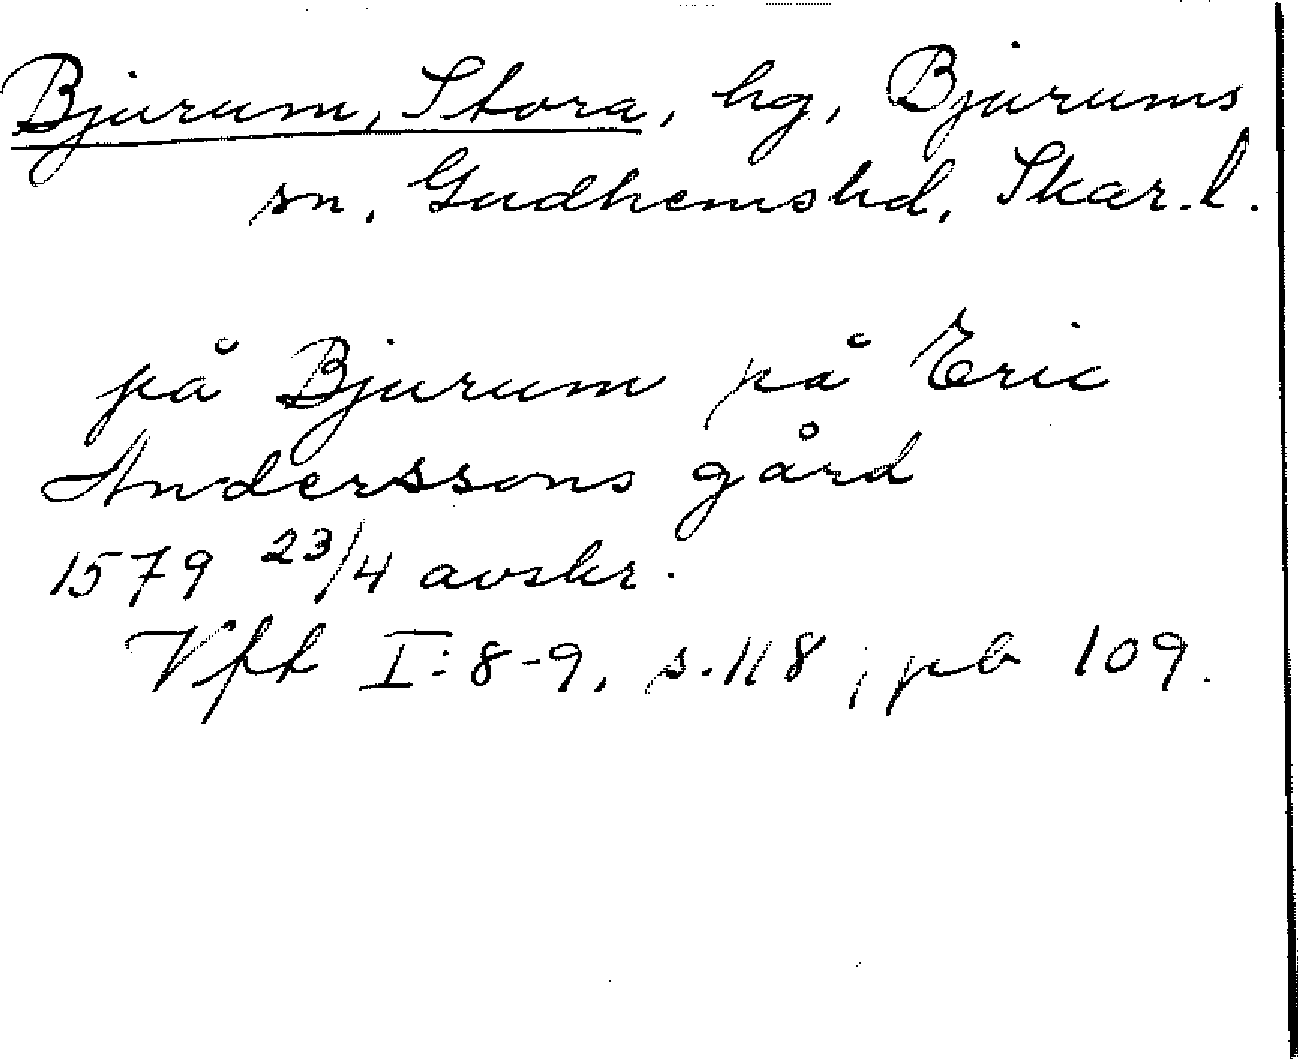 Bjurum, Stora, hg, Bjurums
sn, Gudhemshd, Skar. l.
på Bjurum på Eric
Anderssons gård
1579 23/4 avskr.
Vft I:8-9, s.118; pb 109.